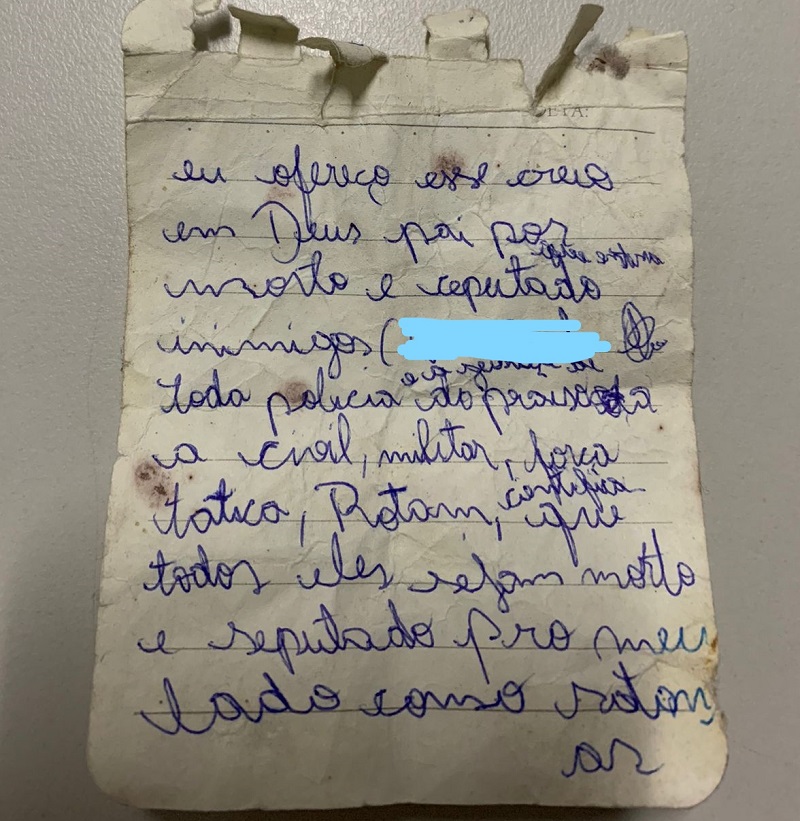 ETA:
eu ofereço esse creio
em Deus pai por
morto e ceputado
inimigos (
toda policia do
a civil, militar, força
tatica, Rotam, que
todos eles sejam morto
e seputado pro meu
lado como